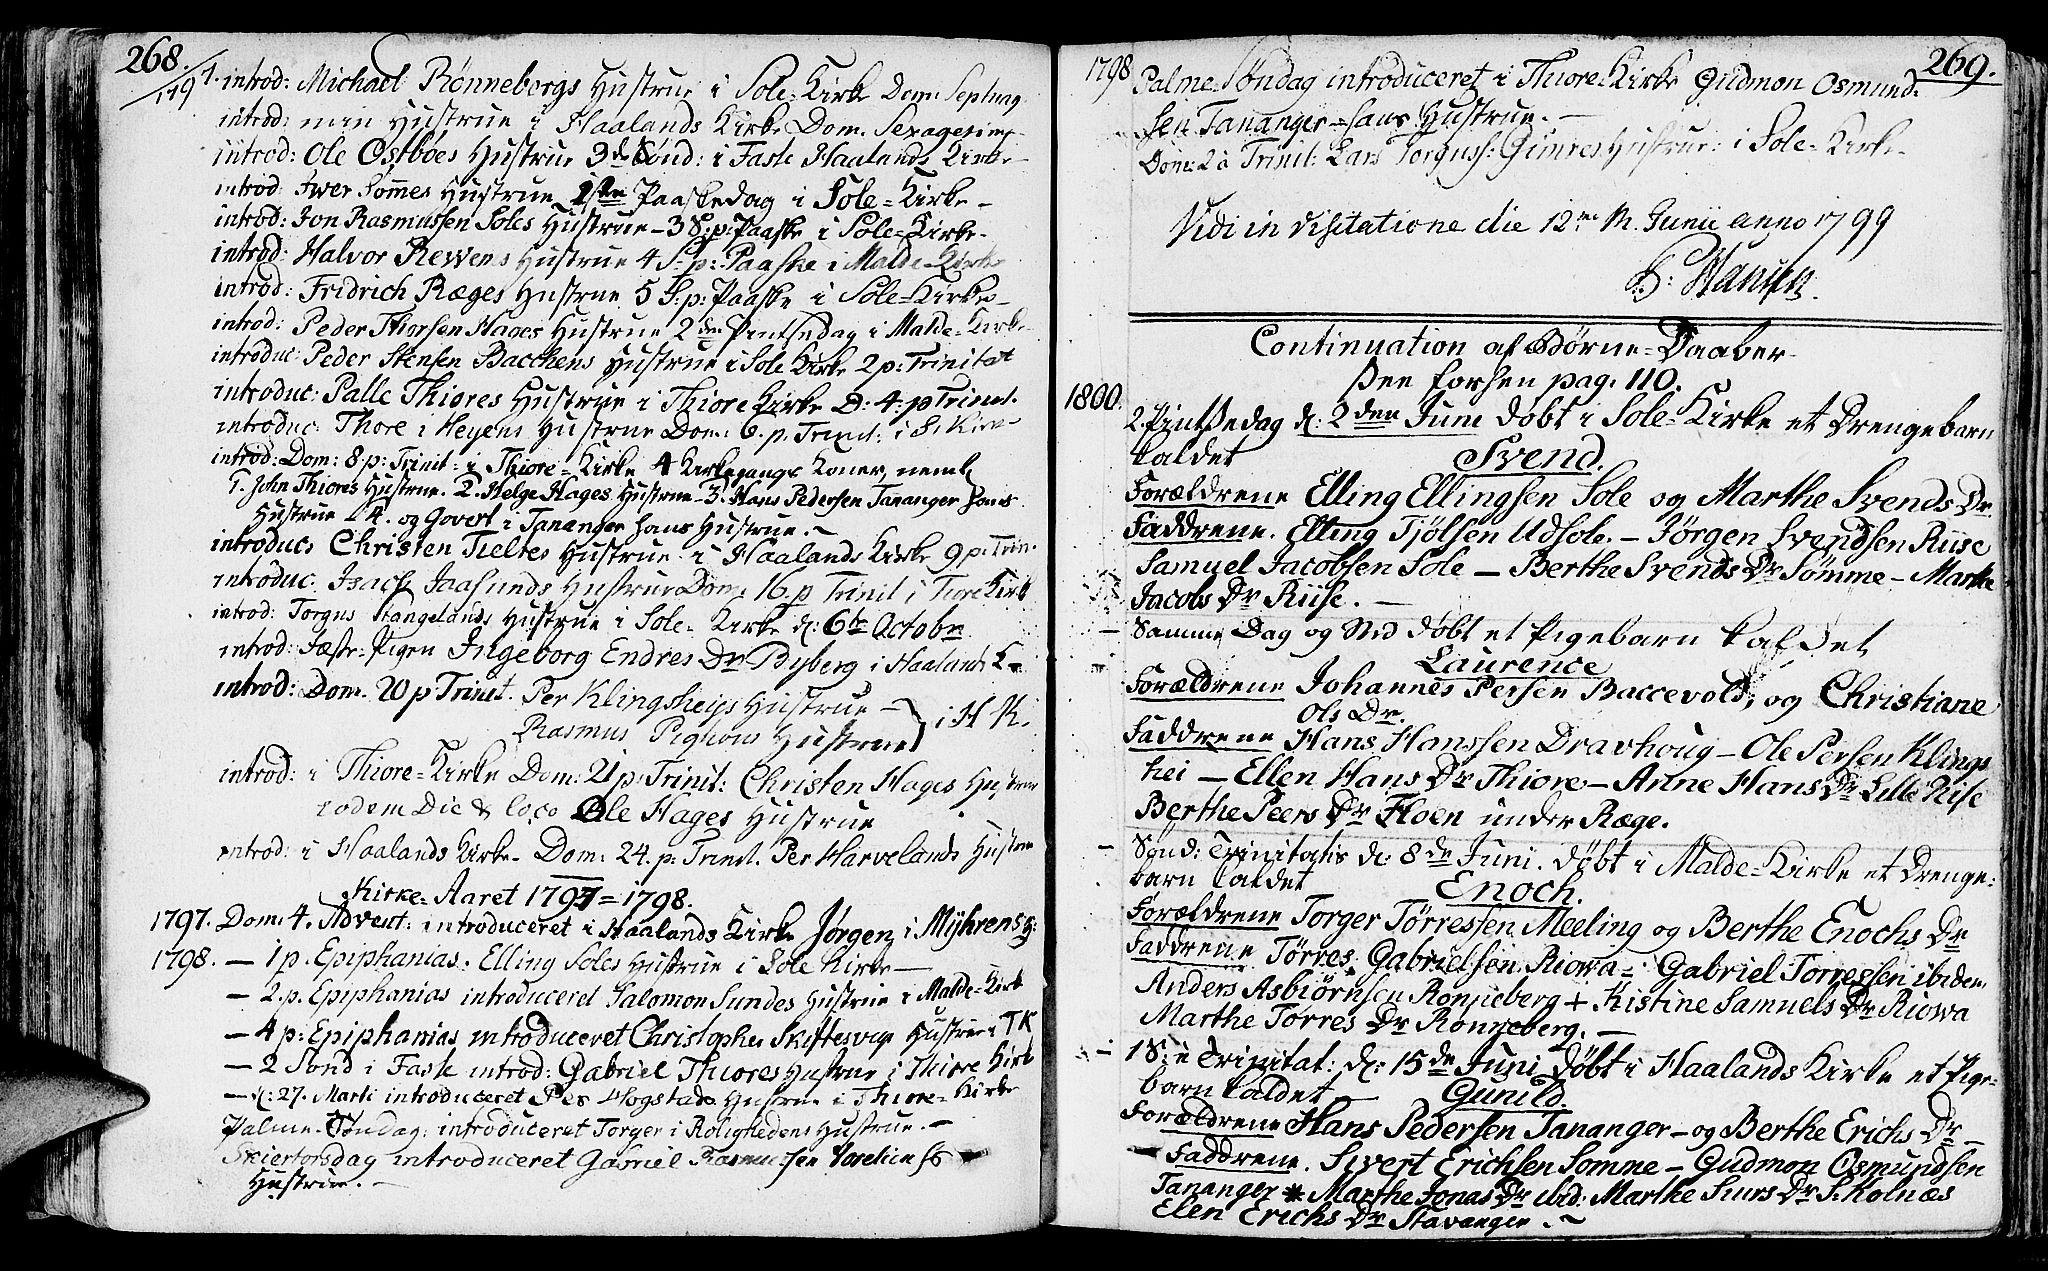 268.
1797. introd: Michael Rønneborgs Hustrue i Sole-Kirke Dom: Septuag
introd: min Hustrue i Haalands Kirke Dom. Sexagesimæ
introd: Ole Ostbøes Hustrue 3de Sønd: i Faste Haalands Kirke
introd: Iwer Sømes Hustrue 1ste Paaskedag i Sole-Kirke-
introd: Jon Rasmussen Soles Hustrue - 3 S: p: Paaske i Sole-Kirke-
introd: Halvor Revens Hustrue 4 S: p: Paaske i Malde-Kirke
introd: Fridrich Ræges Hustrue 5 S: p: Paaske i Sole-Kirke-
introd: Peder Thorsen Hages Hustrue 2den Pintsedag i Malde-Kirke
introduc: Peder Stensen Bacchens Hustrue i Sole Kirke 2 p: Trinitat
introduc: Palle Thiores Hustrue i Thiore Kirke D: 4: p Trinit.
introduc: Thore i Heyens Hustrue Dom: 6. p. Trinit: i S. Kirke
introd: Dom: 8. p: Trinit: i Thiore-Kirke 4 Kirkegangs Koner, neml
1. John Thiores Hustrue. 2. Helge Hages Hustrue - 3. Hans Pedersen Tananger hans
Hustrue - 4. og Govert i Tananger hans Hustrue. -
introduc: Christen Tieltes Hustrue i Haalands Kirke 9 p. Trin.
introduc. Isach Jaasunds Hustrue Dom: 16. p Trinit i Tiore Kirk
introd: Torgus Stangelands Hustrue i Sole-Kirke d: 6te Octobr
introd: Fæste-Pigen Ingeborg Endres Dr Byberg i Haalands K-
introd: Dom. 20 p Trinit. Per Klingsheys Hustrue -
Rasmus Hustrue } i H K.
introd: i Thiore-Kirke Dom: 21 p: Trinit: Christen Hages Hustrue
eodem Die & loco Ole Hages Hustrue
introd: i Haalands Kirke- Dom: 24. p: Trinit. Per Harvelands Hustrue
Kirke-Aaret 1797 = 1798.
1797. Dom: 4. Advent: introduceret i Haalands Kirke Jørgen i Myhrens H:
1798. - 1 p. Epiphanias. Elling Soles Hustrue i Sole Kirke -
- 2. p. Epiphanias introduceret Salomon Sundes Hustrue i Malde-Kirk
- 4 p: Epiphanias introduceret Christopher Skiftesvigs Hustrue i TK
- 2 Sønd i Faste introd: Gabriel Thiores Hustrue i Thiore Kirk
- d: 27. Marti introduceret Per Hogstads Hustrue i Thiore-Kirke
Palme-Søndag: introduceret Torger i Rolighedens Hustrue. -
Skiertorsdag introduceret Gabriel Rasmussen
Hustrue. -
269.
1798 Palme-Søndag introduceret i Thiore-Kirke Gudmon Osmund-
sen Tananger - hans Hustrue. -
Dom: 2 a Trinit: Lars Torguss: Gimres Hustrue: i Sole-Kirke-
Vidi in visitatione die 12me M. Junii anno 1799
P: Hansen.
Continuation af Børne-Daaber-
see forhen pag. 110.
1800.
2. Pintsedag d: 2den Juni døbt i Sole-Kirke et Drengebarn
kaldet Svend.
Forældrene Elling Ellingsen Sole og Marthe Svends Dr
Faddrene. Elling Tjølsen Udsole. - Jørgen Svendsen Riise
Samuel Jacobsen Sole - Berthe Svends Dr Sømme - Marthe
Jacobs Dr Riise. -
- Samme Dag og Sted døbt et Pigebarn kaldet
Laurence
Forældrene Johannes Persen Baccevold, og Christiane
Ols Dr.
Faddrene Hans Hanssen Dravhoug - Ole Persen Klings
hei - Ellen Hans Dr Thiore - Anne Hans Dr Lille Riise
Berthe Peers Dr Floen under Ræge.
- Sønd: Trinitatis d: 8de Juni. døbt i Malde-Kirke et Drenge-
barn kaldet Enoch.
Forældrene Torger Tørressen Meeling og Berthe Enochs Dr
Faddrene Tørres Gabrielsen Riowa - Gabriel Torressen ibidem
Anders Asbiørnsen Ronneberg + Kistine Samuels Dr Riowa
Marthe Torres Dr Ronneberg. -
- 1 S: e Trinitat: d: 15de Juni døbt i Haalands Kirke et Pige-
barn kaldet Gunild
Forældrene Hans Pedersen Tananger - og Berthe Erichs Dr -
- Faddrene. Sivert Erichsen Somme - Gudmon Osmundsen
Tananger * Marthe Jonas Dr ibid: Marthe Siurs Dr S: Kolnæs
Elen Erichs Dr Stavanger. -